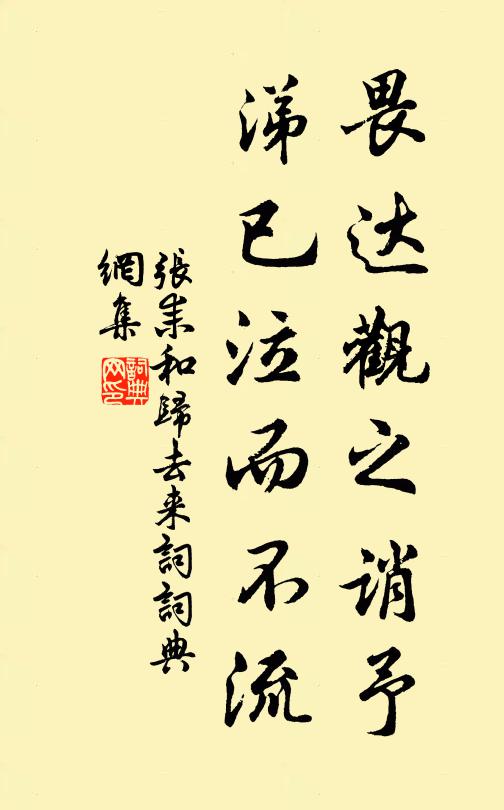 畏达觀之誚予
涕已泣而不流
張耒和歸去来詞詞典
網集
詞典
网印